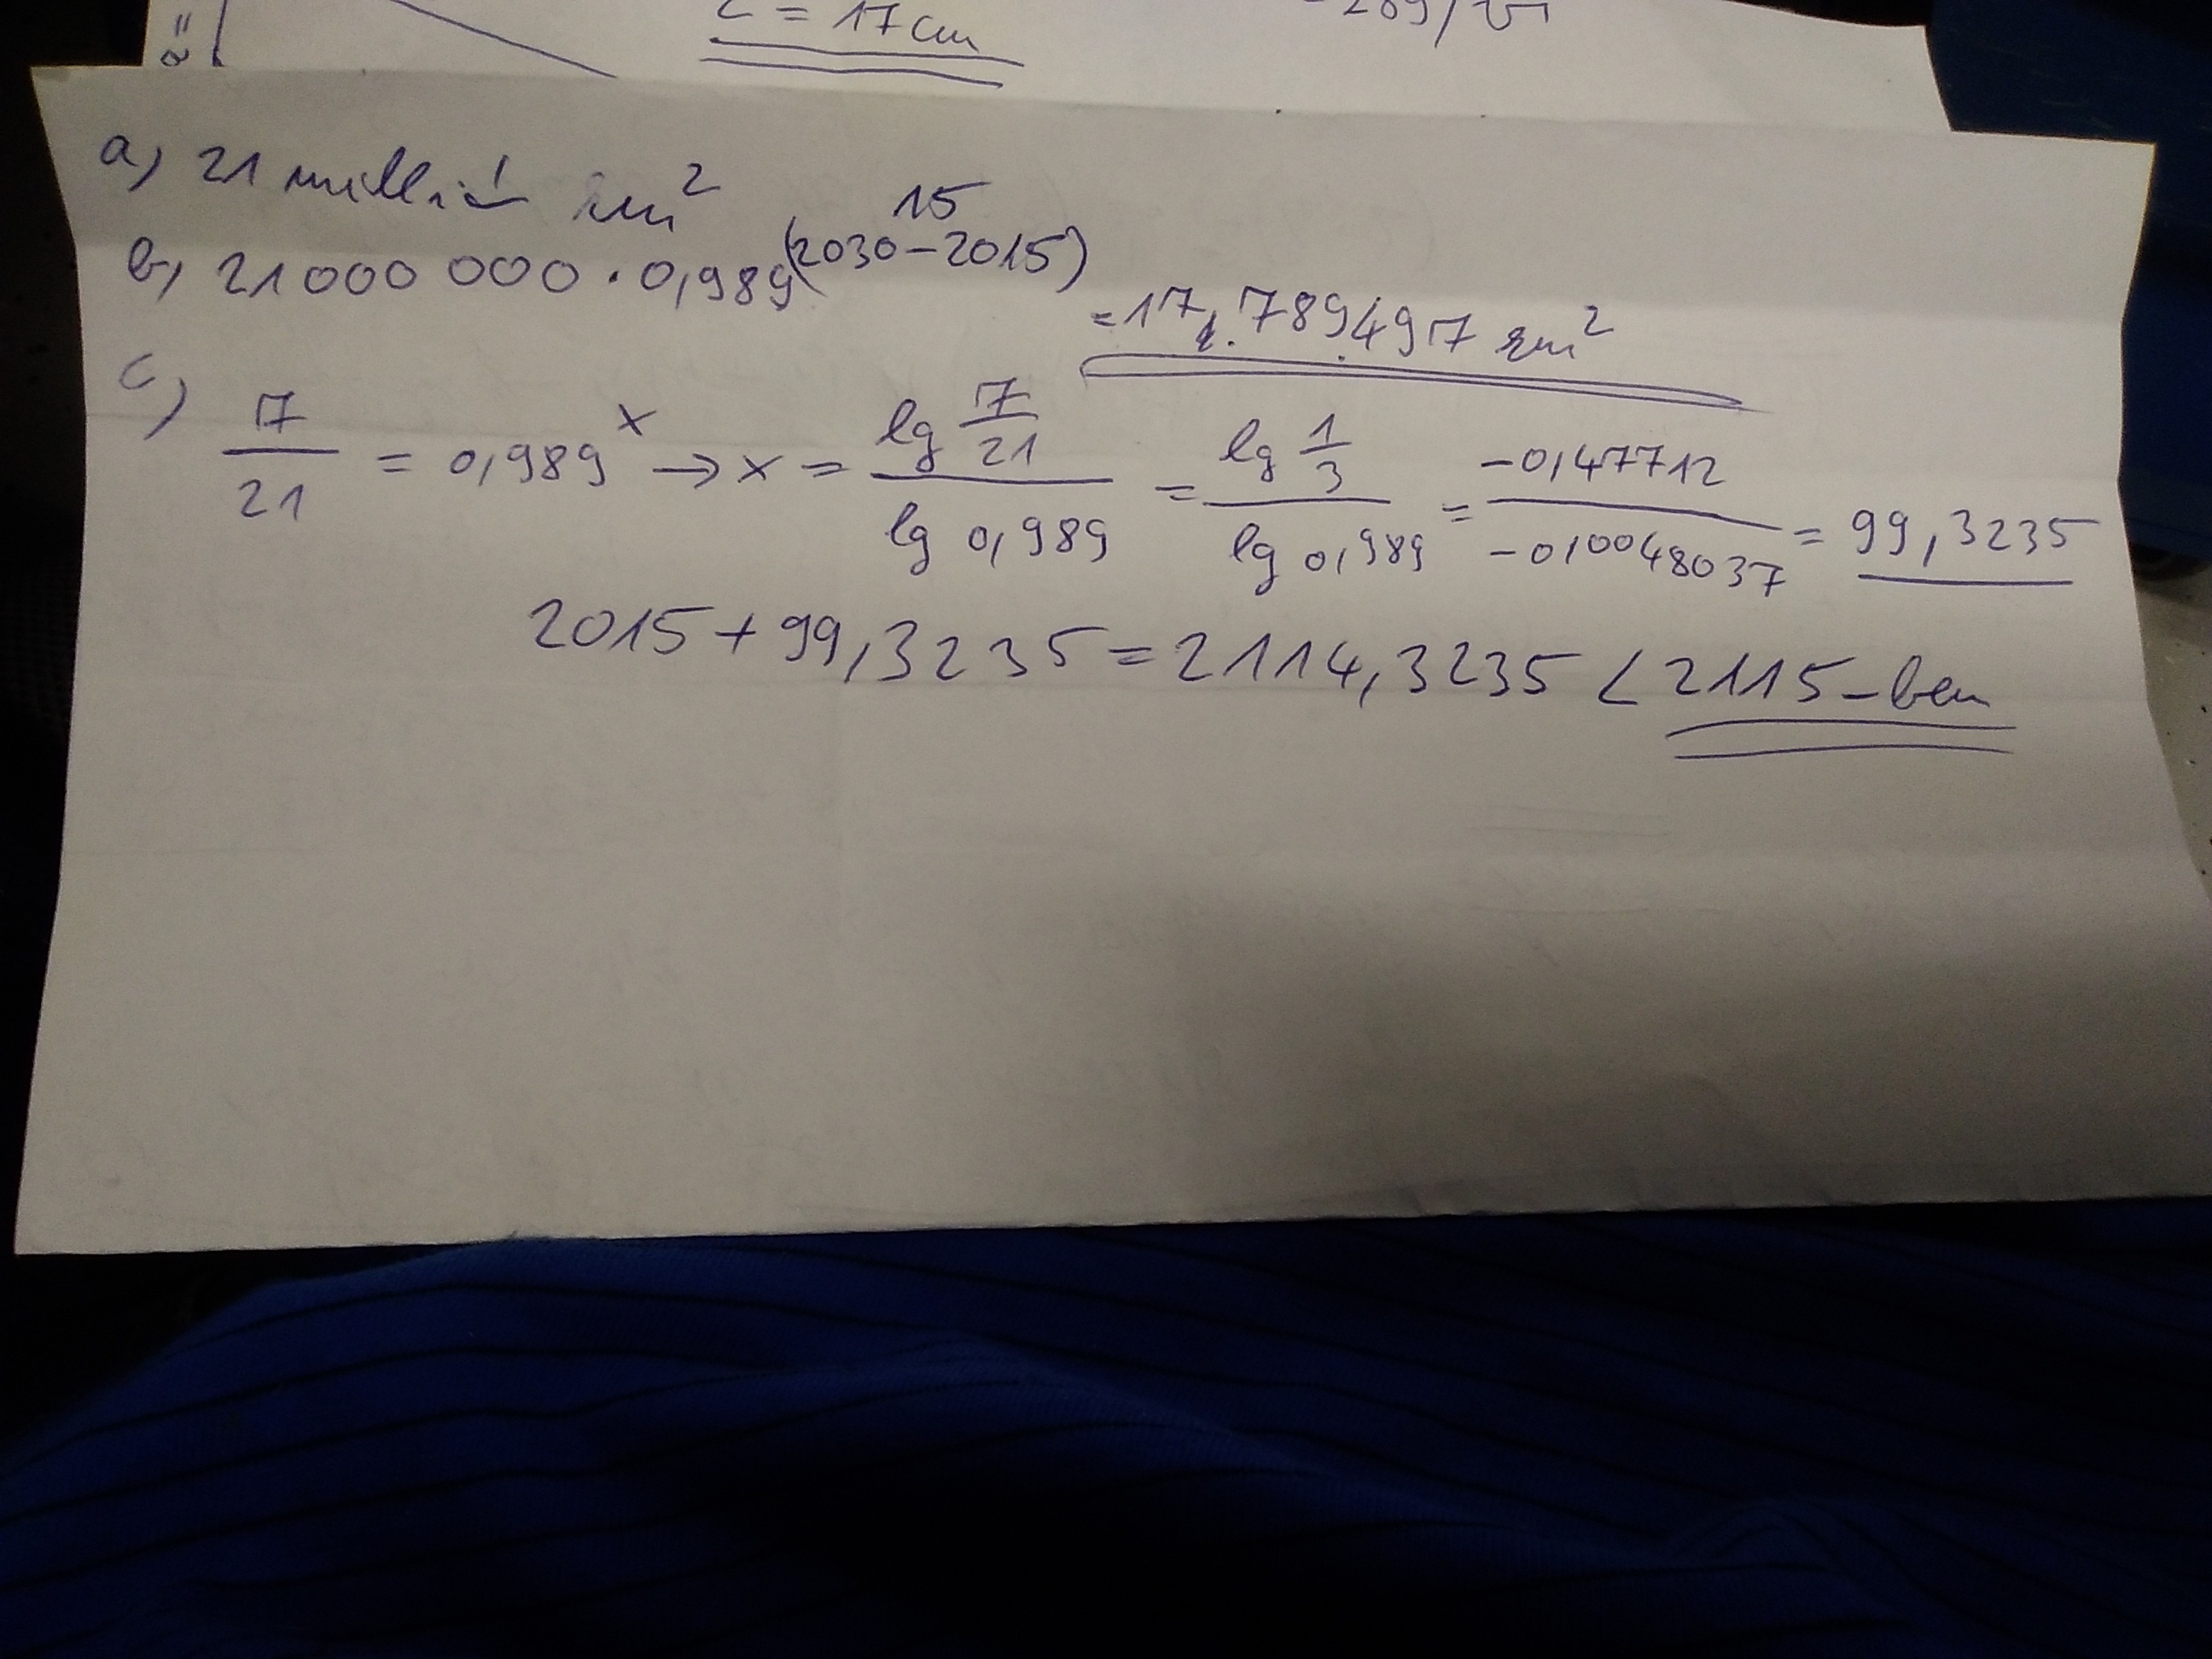 c = 17 cm
a) 21 millió km²
b) 21000 000 · 0,989^(2030-2015) 15
= 17.789.497 km²
c) 7/21 = 0,989^x → x = lg 7/21 / lg 0,989 = lg 1/3 / lg 0,989 = -0,47712 / -0,0048037 = 99,3235
2015 + 99,3235 = 2114,3235 < 2115-ben